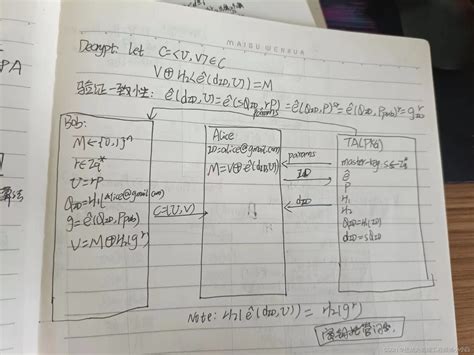 MAIBU WENHUA
Decrypt: Let C=<U,V>∈C
V⊕H₂(ê(d_ID,U))=M
验证一致性: ê(d_ID,U)=ê(sQ_ID,rP)=ê(Q_ID,P)^sr=ê(Q_ID,P_pub)^r=g_ID^r
Bob:
M←{0,1}^n
r∈Z_q^*
U=rP
Q_ID=H₁(Alice@gmail.com)
g=ê(Q_ID,P_pub)
V=M⊕H₂(g^r)
C=(U,V)
Alice
ID=alice@gmail.com
M=V⊕ê(d_ID,U)
params
ID
d_ID
TA(PKG)
master-key: s∈Z_q^*
ê
P
H₁
H₂
Q_ID=H₁(ID)
d_ID=sQ_ID
Note: H₂(ê(d_ID,U)) = H₂(g^r)